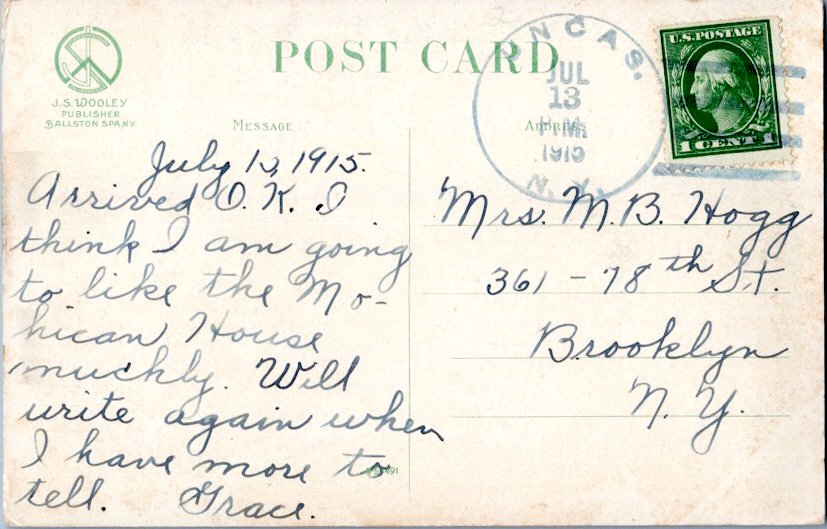 POST CARD
J.S. WOOLEY
PUBLISHER
BALLSTON SPA N.Y.
MESSAGE
ADDRESS
UNCAS.
JUL
13
P.M.
1915
N.Y.
U.S. POSTAGE
1 CENT 1
July 13, 1915.
Arrived O.K. I
think I am going
to like the Mo-
hican House
muchly. Will
write again when
I have more to
tell. Grace.
Mrs. M.B. Hogg
361 - 78th St.
Brooklyn
N.Y.